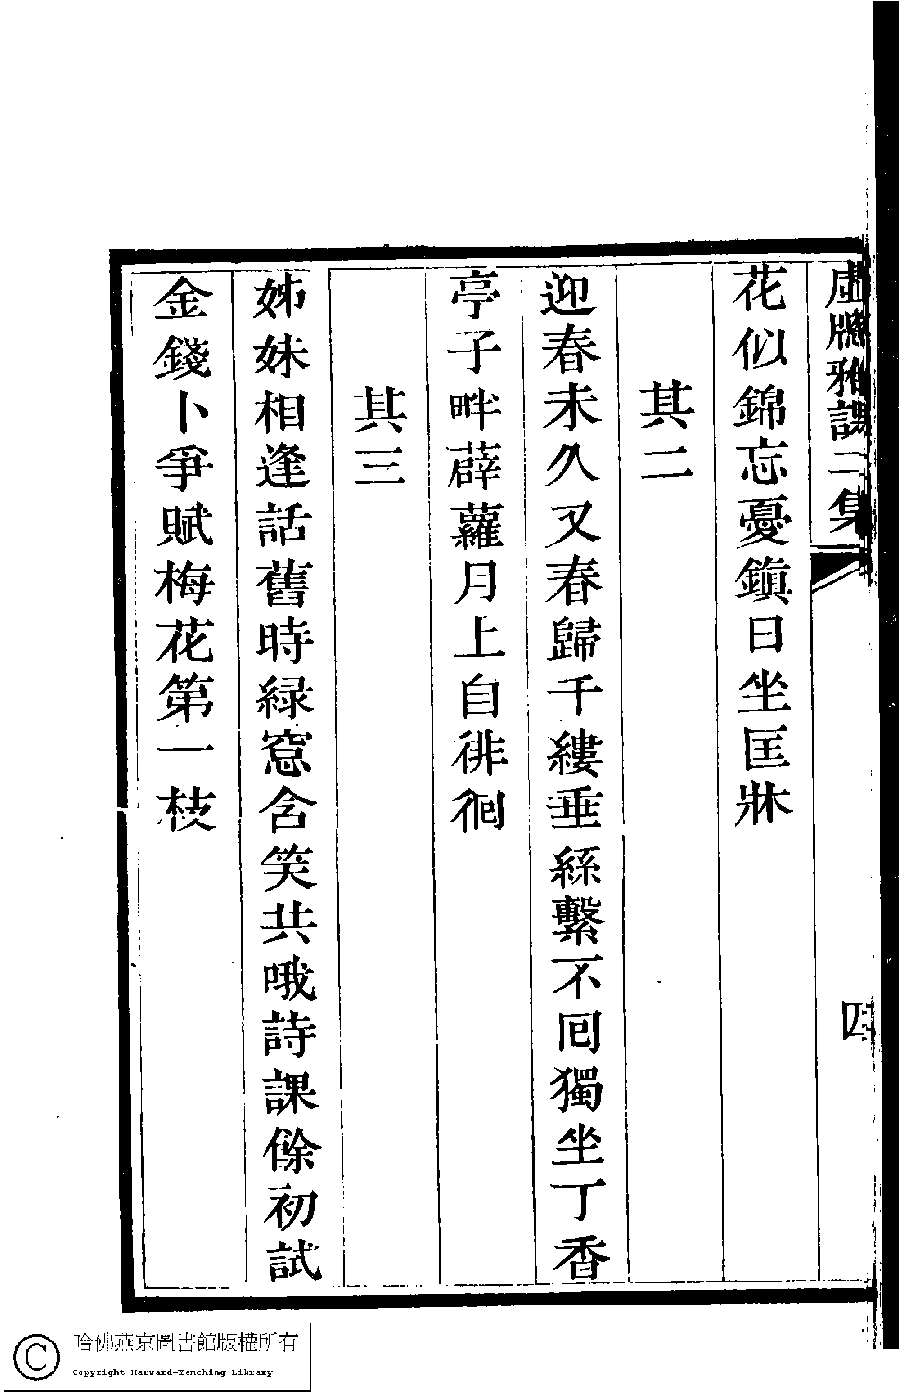 虛牕雅課二集
四
花似錦忘憂鎭日坐匡牀
其二
迎春未久又春歸千縷垂絲繫不囘獨坐丁香
亭子畔薜蘿月上自徘徊
其三
姊妹相逢話舊時緑窻含笑共哦詩課餘初試
金錢卜爭賦梅花第一枝
哈佛燕京圖書館版權所有
Copyright Harvard-Yenching Library